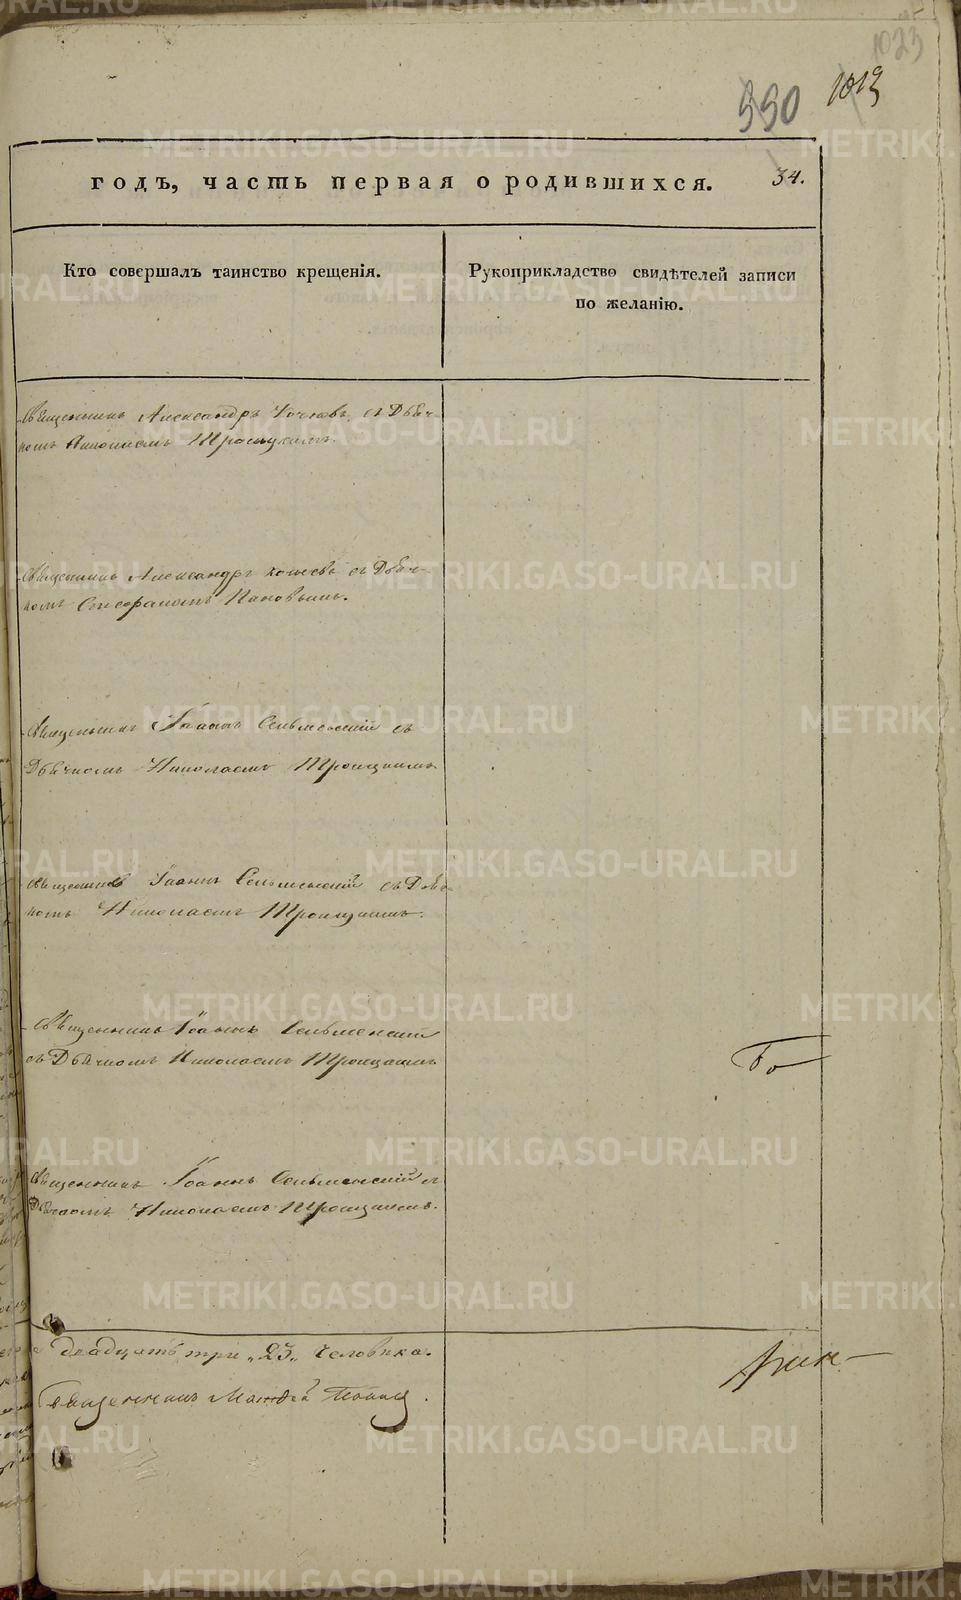 1023
1019
990
годъ, часть первая о родившихся. 34.
Кто совершалъ таинство крещенія.
Рукоприкладство свидѣтелей записи
по желанію.
Священникъ Александръ съ Дьяч-
комъ Николаемъ Троицкимъ.
Священникъ Александръ съ Дьяч-
комъ Стефаномъ Поповымъ.
Священникъ Іоаннъ Сельменскій съ
Дьячкомъ Николаемъ Троицкимъ
Священникъ Іоаннъ Сельменскій съ Дьяч-
комъ Николаемъ Троицкимъ.
Священникъ Іоаннъ Сельменскій
съ Дьячкомъ Николаемъ Троицкимъ
Бо
Священникъ Іоаннъ Сельменскій съ
Дьячкомъ Николаемъ Троицкимъ.
двадцать три „23„ человѣка.
Священникъ Матѳей Поповъ.
METRIKI.GASO-URAL.RU